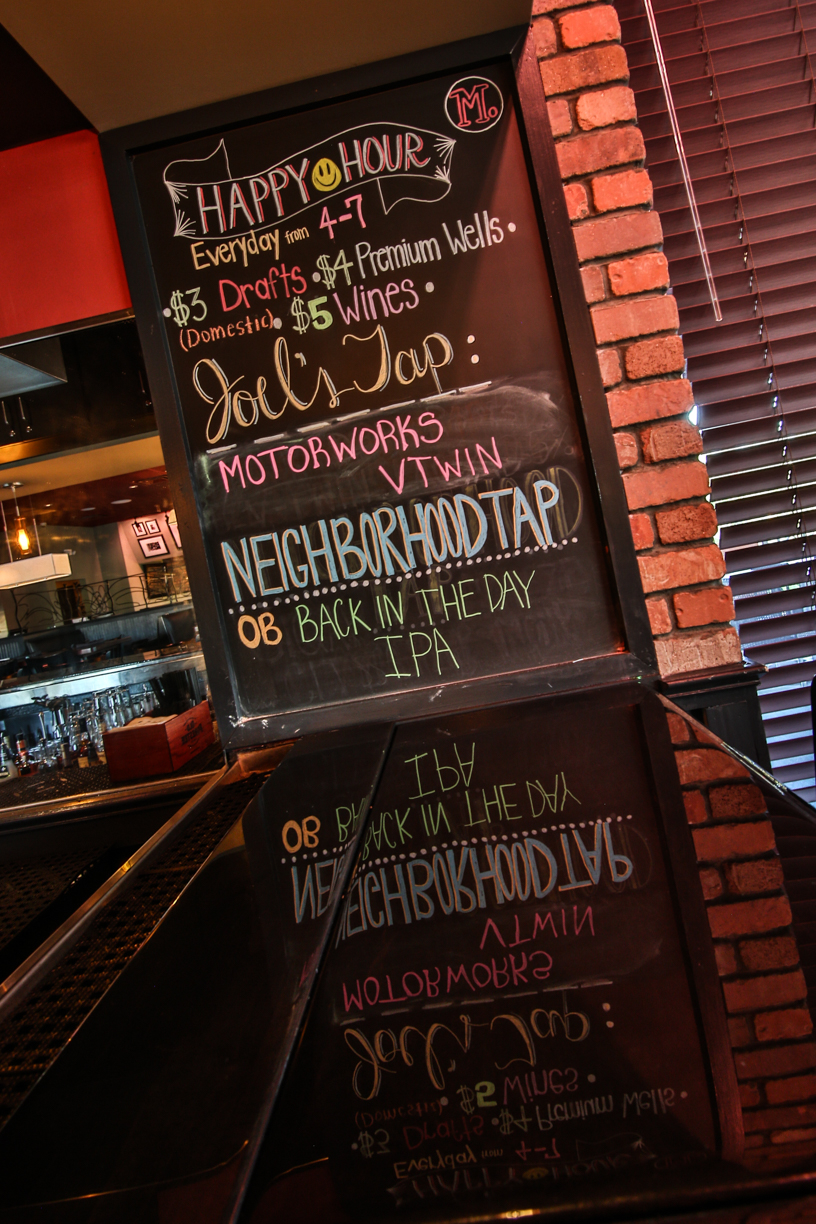 M.
HAPPY HOUR
Everyday from 4-7
•$3 Drafts •$4 Premium Wells•
(Domestic)• $5 Wines •
Joel's Tap:
MOTORWORKS
VTWIN
NEIGHBORHOOD TAP
OB BACK IN THE DAY
IPA